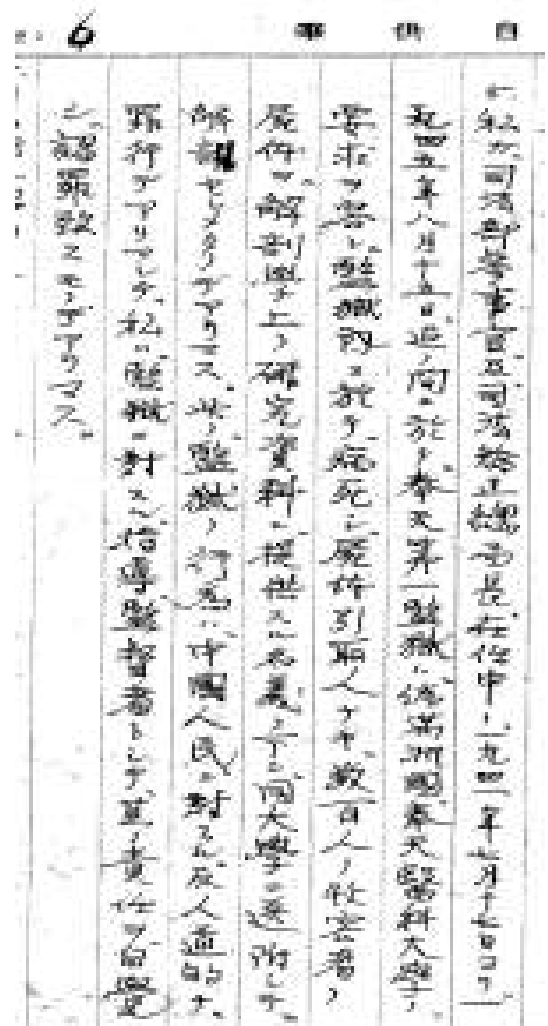 自供書
6
私ガ司法部参事官及司法矯正總局長在任中ノ一九四一年七月十七日ヨリ一
九四五年八月十五日迄ノ間ニ於テ奉天第一監獄ハ偽満洲國奉天醫科大學ノ
要求ヲ容レ監獄内ニ於テ病死シ屍体引取人ナキ数百人ノ牡害者ノ
屍体ヲ解剖學上ノ研究資料ニ提供スル名義ノ下ニ同大學ニ送附シテ
解剖セシメタノデアリマス、此ノ監獄ノ行為ハ中國人民ニ対スル反人道的ナ
罪行デアリマシテ、私ハ監獄ニ対スル指導監督者トシテ其ノ責任ヲ自覺
シ認罪致スモノデアリマス。